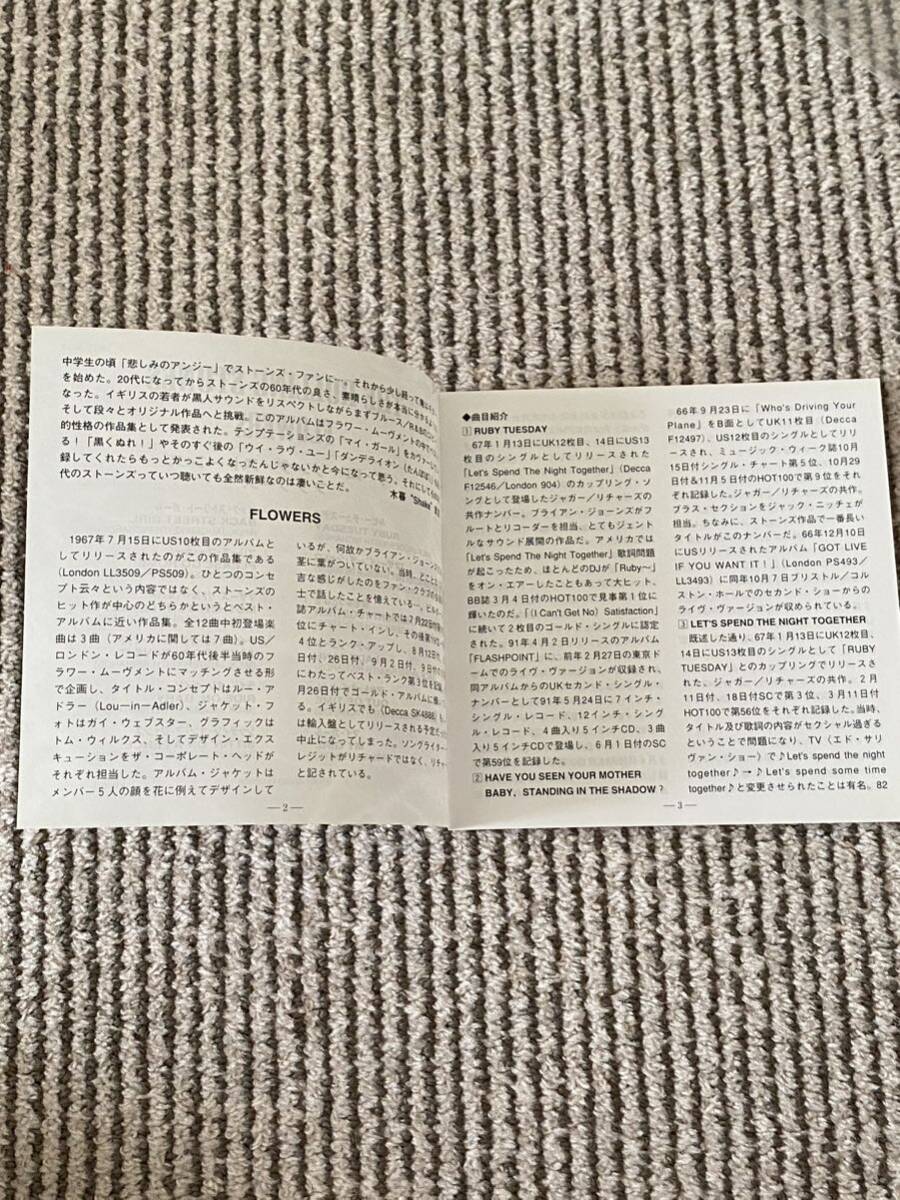 中学生の頃「悲しみのアンジー」でストーンズ・ファンに… それから少し経って
を始めた。20代になってからストーンズの60年代の良さ、素晴らしさが本当に分かるように
なった。イギリスの若者が黒人サウンドをリスペクトしながらまずブルース/R&B
そして段々とオリジナル作品へと挑戦。このアルバムはフラワー・ムーヴメントの中で
的性格の作品集として発表された。テンプテーションズの「マイ・ガール」をカヴァー
る!「黒くぬれ!」やそのすぐ後の「ウイ・ラヴ・ユー」「ダンデライオン(たんぽぽ)」
録してくれたらもっとかっこよくなったんじゃないかと今になって思う。それにしても
代のストーンズっていつ聴いても全然新鮮なのは凄いことだ。
木暮 "Shake"
FLOWERS
1967年7月15日にUS10枚目のアルバムと
してリリースされたのがこの作品集である
(London LL3509/PS509)。ひとつのコンセ
プト云々という内容ではなく、ストーンズの
ヒット作が中心のどちらかというとベスト・
アルバムに近い作品集。全12曲中初登場楽
曲は3曲(アメリカに関しては7曲)。US/
ロンドン・レコードが60年代後半当時のフ
ラワー・ムーヴメントにマッチングさせる形
で企画し、タイトル・コンセプトはルー・ア
ドラー(Lou―in―Adler)、ジャケット・フ
ォトはガイ・ウェブスター、グラフィックは
トム・ウィルクス、そしてデザイン・エクス
キューションをザ・コーポレート・ヘッドが
それぞれ担当した。アルバム・ジャケットは
メンバー5人の顔を花に例えてデザインして
いるが、何故かブライアン・ジョーンズ
茎に葉がついていない。当時、どことなく
吉な感じがしたのをファン・クラブの
士で話したことを憶えている…。ビルボード
誌アルバム・チャートでは7月22日付
位にチャート・イン、その後第
4位とランク・アップし、8月12日
日付、26日付、9月2日付、9日付
にわたってベスト・ランク第3位を記録
月26日付でゴールド・アルバムに
る。イギリスでも(Decca SK4888)
は輸入盤としてリリースされる予定だった
中止になってしまった。ソングライター
レジットがリチャードではなく、リチャー
と記されている。
―2―
◆曲目紹介
1 RUBY TUESDAY
67年1月13日にUK12枚目、14日にUS13
枚目のシングルとしてリリースされた
「Let's Spend The Night Together」(Decca
F12546/London 904)のカップリング・ソ
ングとして登場したジャガー/リチャーズの
共作ナンバー。ブライアン・ジョーンズがフ
ルートとリコーダーを担当、とてもジェント
ルなサウンド展開の作品だ。アメリカでは
「Let's Spend The Night Together」歌詞問題
が起こったため、ほとんどのDJが「Ruby〜」
をオン・エアーしたこともあって大ヒット、
BB誌3月4日付のHOT100で見事第1位に
輝いたのだ。「(I Can't Get No) Satisfaction」
に続いて2枚目のゴールド・シングルに認定
された。91年4月2日リリースのアルバム
「FLASHPOINT」に、前年2月27日の東京ド
ームでのライヴ・ヴァージョンが収録され、
同アルバムからのUKセカンド・シングル・
ナンバーとして91年5月24日に7インチ・
シングル・レコード、12インチ・シング
ル・レコード、4曲入り5インチCD、3曲
入り5インチCDで登場し、6月1日付のSC
で第59位を記録した。
2 HAVE YOU SEEN YOUR MOTHER
BABY, STANDING IN THE SHADOW?
66年9月23日に「Who's Driving Your
Plane」をB面としてUK11枚目(Decca
F12497)、US12枚目のシングルとしてリリ
ースされ、ミュージック・ウィーク誌10月
15日付シングル・チャート第5位、10月29
日付&11月5日付のHOT100で第9位をそれ
ぞれ記録した。ジャガー/リチャーズの共作。
ブラス・セクションをジャック・ニッチェが
担当。ちなみに、ストーンズ作品で一番長い
タイトルがこのナンバーだ。66年12月10日
にUSリリースされたアルバム「GOT LIVE
IF YOU WANT IT!」(London PS493/
LL3493)に同年10月7日ブリストル/コル
ストン・ホールでのセカンド・ショーからの
ライヴ・ヴァージョンが収められている。
3 LET'S SPEND THE NIGHT TOGETHER
既述した通り、67年1月13日にUK12枚目、
14日にUS13枚目のシングルとして「RUBY
TUESDAY」とのカップリングでリリースさ
れた。ジャガー/リチャーズの共作。2月
11日付、18日付SCで第3位、3月11日付
HOT100で第56位をそれぞれ記録した。当時、
タイトル及び歌詞の内容がセクシャル過ぎる
ということで問題になり、TV〈エド・サリ
ヴァン・ショー〉で♪Let's spend the night
together♪→♪Let's spend some time
together♪と変更させられたことは有名。82
―3―